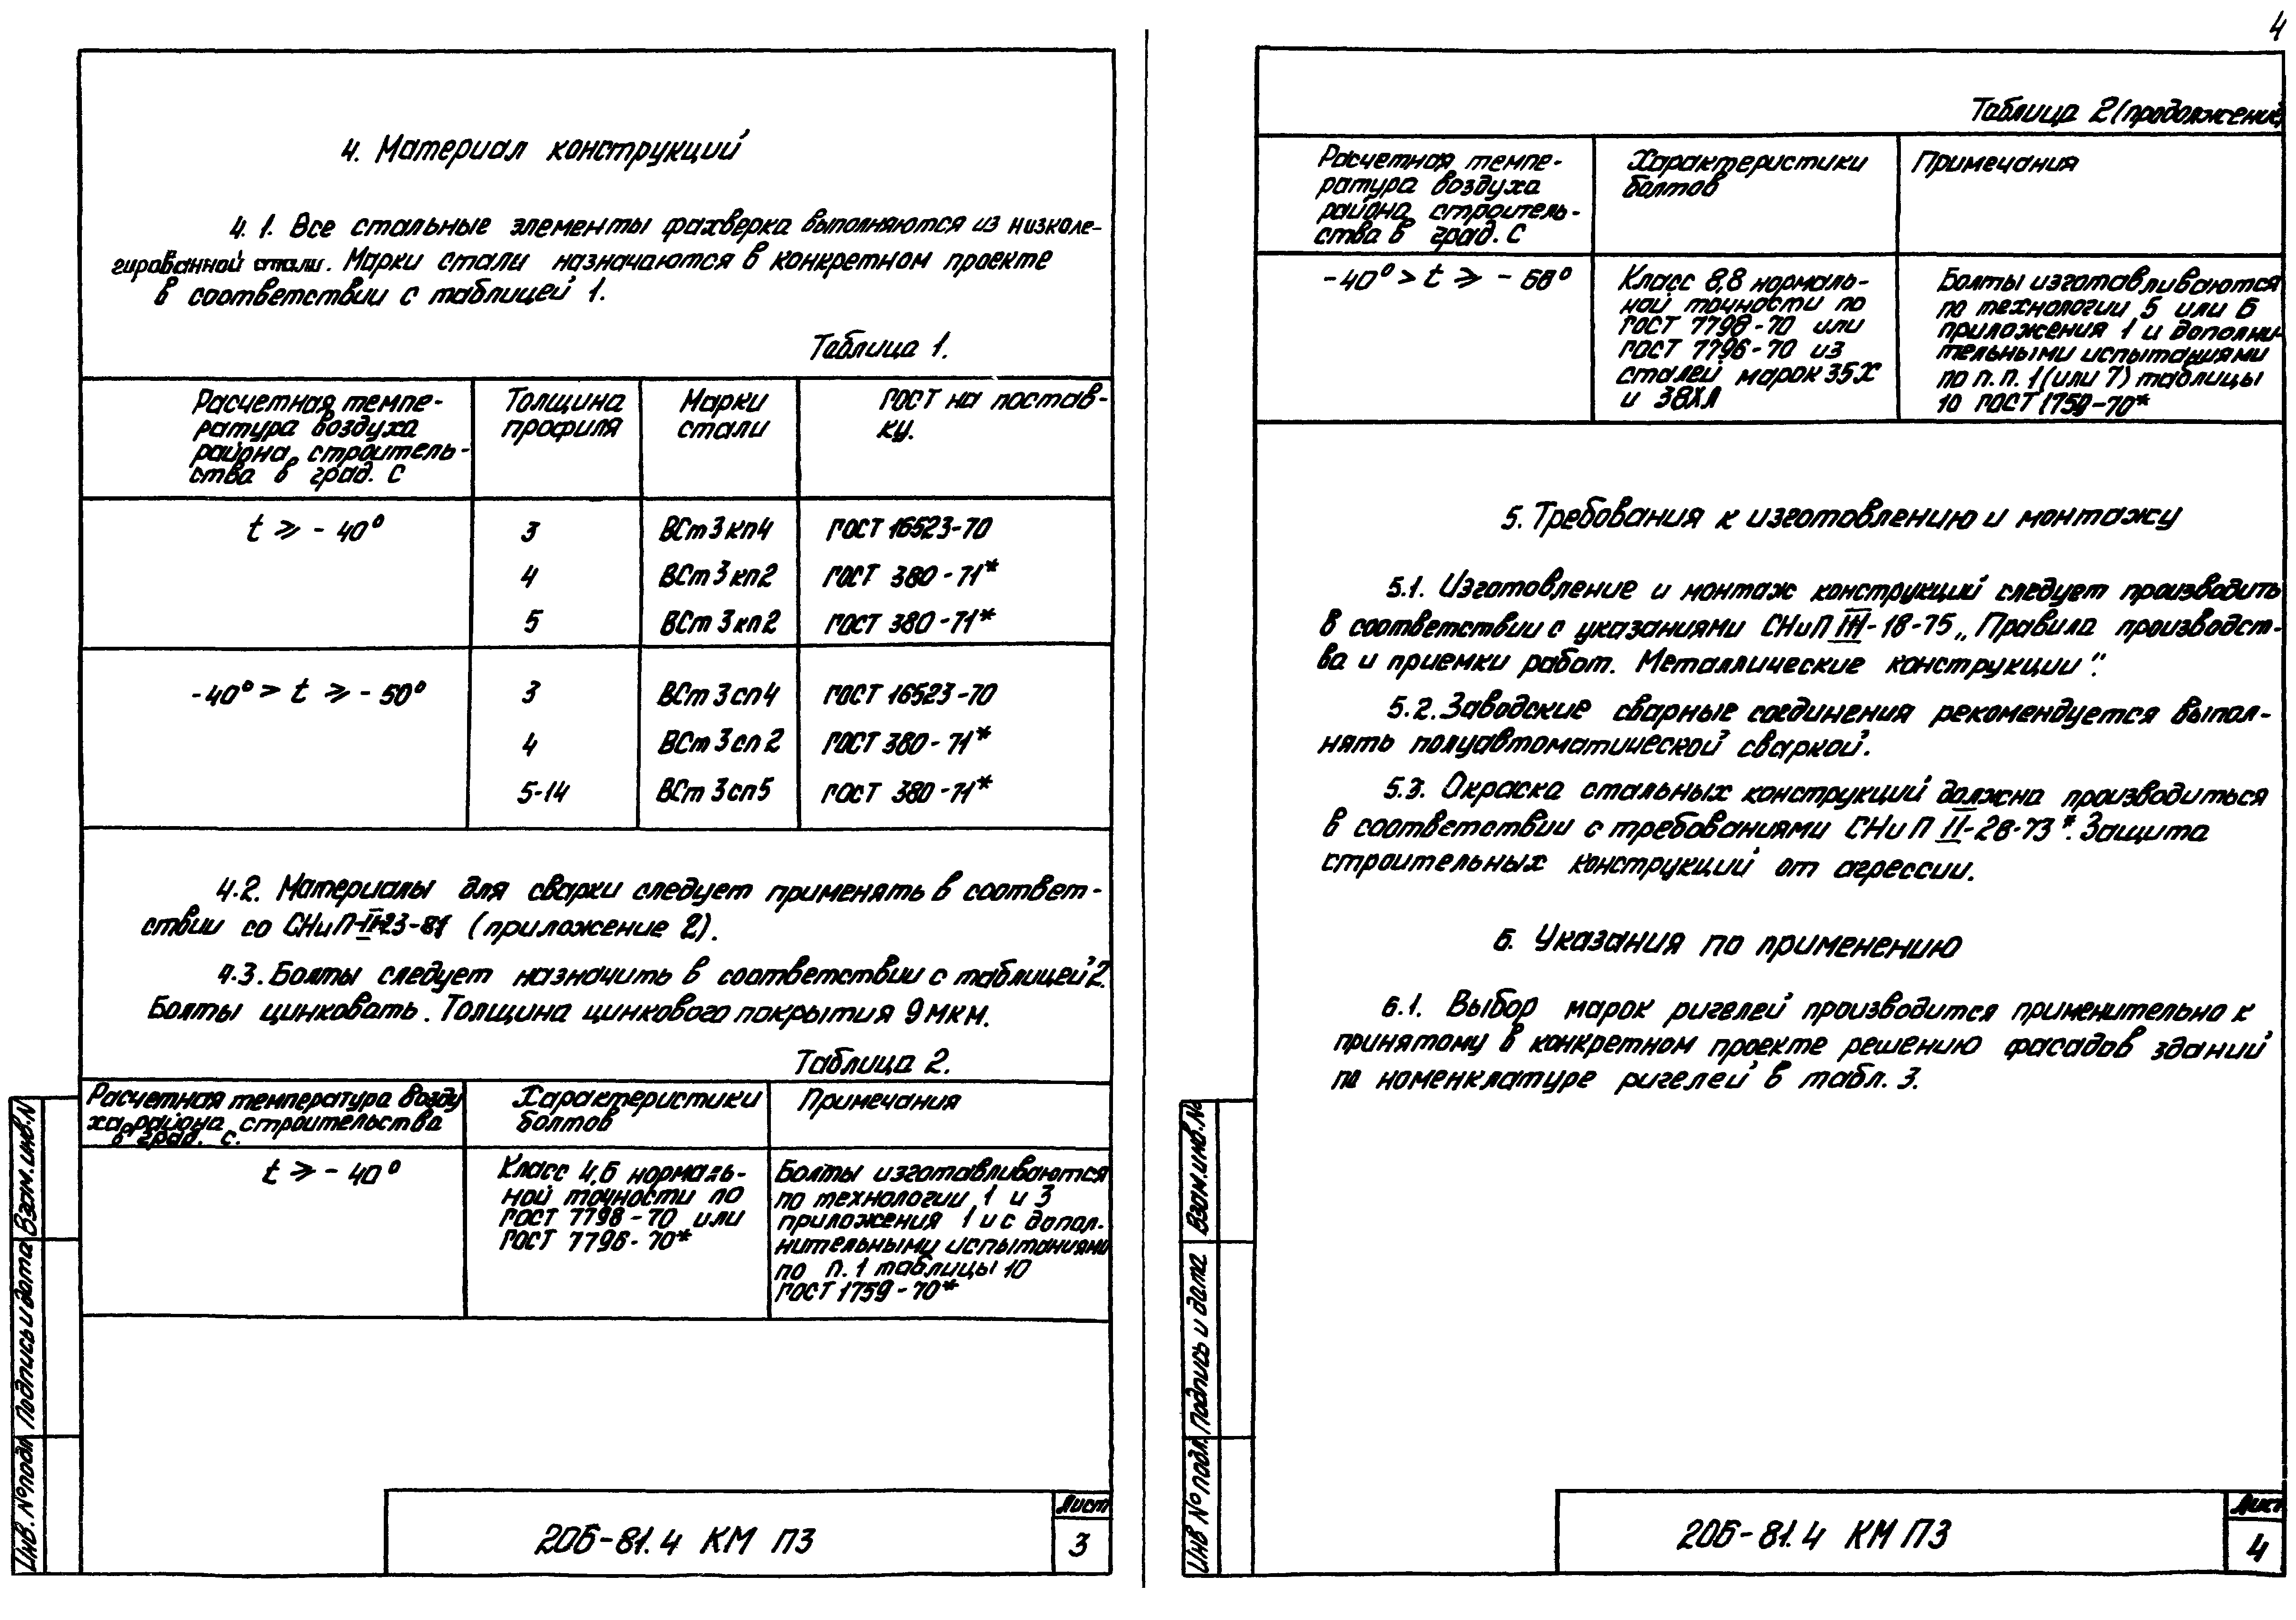 4. Материал конструкций
4.1. Все стальные элементы фахверка выполняются из низколе-
гированной стали. Марки стали назначаются в конкретном проекте
в соответствии с таблицей 1.
Таблица 1.
Расчетная темпе-
ратура воздуха
района строитель-
ства в град. С
Толщина
профиля
Марки
стали
ГОСТ на постав-
ку.
t ⩾ - 40°
3
ВСт 3 кп4
ГОСТ 16523-70
4
ВСт 3 кп2
ГОСТ 380-71*
5
ВСт 3 кп2
ГОСТ 380-71*
-40° > t ⩾ - 50°
3
ВСт 3 сп4
ГОСТ 16523-70
4
ВСт 3 сп 2
ГОСТ 380-71*
5-14
ВСт 3 сп5
ГОСТ 380-71*
4.2. Материалы для сварки следует применять в соответ-
ствии со СНиП-II-23-81 (приложение 2).
4.3. Болты следует назначить в соответствии с таблицей 2.
Болты цинковать. Толщина цинкового покрытия 9 мкм.
Таблица 2.
Расчетная температура возду
ха района строительства
в град. с.
Характеристики
болтов
Примечания
t ⩾ - 40°
Класс 4,6 нормаль-
ной точности по
ГОСТ 7798-70 или
ГОСТ 7796-70*
Болты изготавливаются
по технологии 1 и 3
приложения 1 и с допол-
нительными испытаниями
по п.1 таблицы 10
ГОСТ 1759-70*
Инв. № подл
Подпись и дата
Взам. инв. №
206-81.4 КМ ПЗ
Лист
3
4
Таблица 2 (продолжение)
Расчетная темпе-
ратура воздуха
района строитель-
ства в град. С
Характеристики
болтов
Примечания
-40° > t ⩾ -
Класс 8,8 нормаль-
ной точности по
ГОСТ 7798-70 или
ГОСТ 7796-70 из
сталей марок 35Х
и
Болты изготавливаются
по технологии 5 или 6
приложения 1 и дополни-
тельными испытаниями
по п.п. 1 (или 7) таблицы
10 ГОСТ 1759-70*
5. Требования к изготовлению и монтажу
5.1. Изготовление и монтаж конструкций следует производить
в соответствии с указаниями СНиП III-18-75 „Правила производст-
ва и приемки работ. Металлические конструкции".
5.2. Заводские сварные соединения рекомендуется выпол-
нять полуавтоматической сваркой.
5.3. Окраска стальных конструкций должна производиться
в соответствии с требованиями СНиП II-28-73*. Защита
строительных конструкций от агрессии.
6. Указания по применению
6.1. Выбор марок ригелей производится применительно к
принятому в конкретном проекте решению фасадов зданий
по номенклатуре ригелей в табл. 3.
Инв № подл.
Подпись и дата
Взам. инв. №
206-81.4 КМ ПЗ
Лист
4